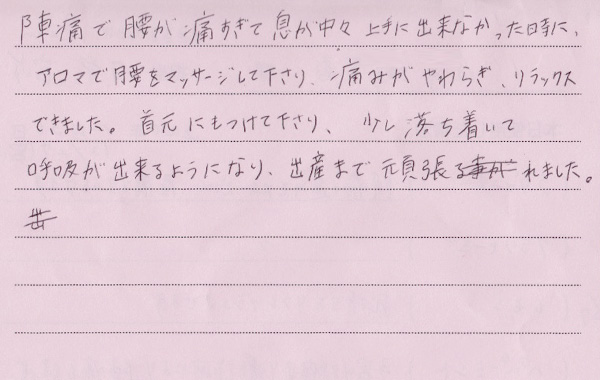 陣痛で腰が痛すぎて息が中々上手に出来なかった時に、
アロマで腰をマッサージして下さり、痛みがやわらぎ、リラックス
できました。首元にもつけて下さり、少し落ち着いて
呼吸が出来るようになり、出産まで頑張れました。